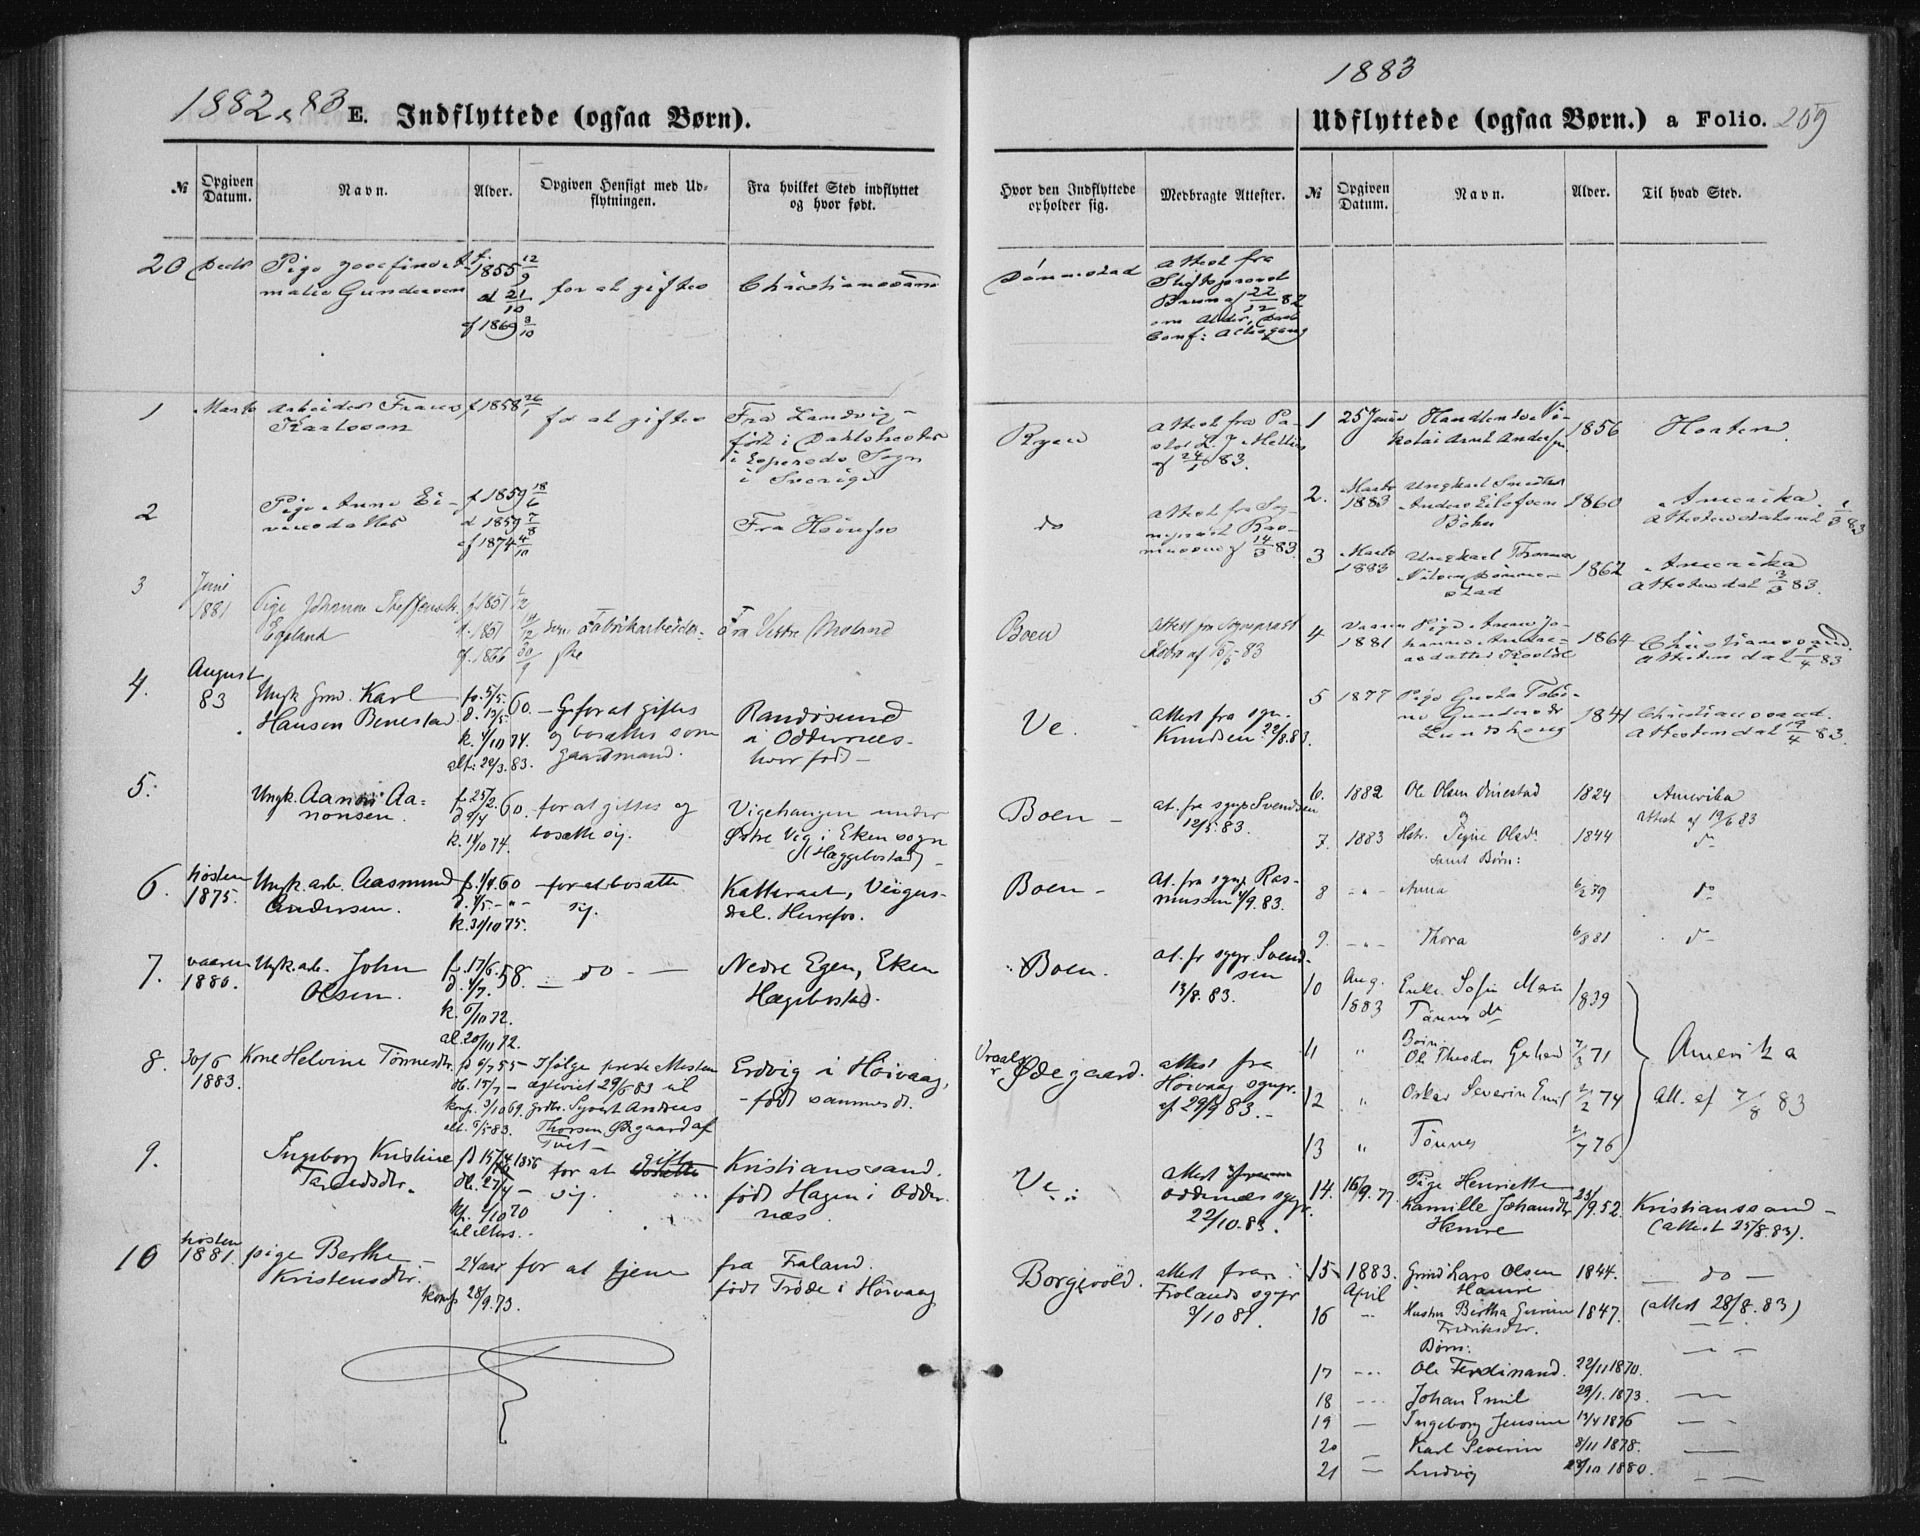 1882 & 83 E. Indflyttede (ogsaa Børn).
№ Opgiven Datum. Navn. Alder. Opgiven Hensigt med Udflytningen. Fra hvilket Sted indflyttet og hvor født.
Hvor den Indflyttede opholder sig. Medbragte Attester.
20 Decbr Pige Josefine
Gundersen
f. 1855 12/9
d 21/10
cf 1869 3/10
for at giftes
Christianssand
Dønnestad
Attest fra
Stiftsprovst
Bruun af 22/12 82
om Alder, Daab
Conf: Altergang
1 Marts Arbeider Frans
Karlsson
f 1858 26/1
for at giftes
Fra Landvig –
født i Dalshester
i Sogn
i Sverige
Ryen
Attest fra Pa-
stor L. J.
af 24/1 83.
2 Pige Anne Ei-
vindsdatter
f 1859 18/6
d 1859 7/8
cf 1874 4/10
Fra Herefos
do
Attest fra Sog-
neprest Ras-
mussen af 14/3 83.
3 Juni
1881
Pige Johanne Steffensdr.
Egeland
f. 1851 1/12
d. 1851
cf. 1866 30/9
som Fabrikarbeider-
ske
Fra Vestre Moland
Boen
Attest fra Sogneprest
4. August
83
Ungk. Grd. Karl
Hansen Benestad
fø. 5/5.
d. 13/5. 60.
k. 4/10 74.
alt: 22/3. 83.
– for at giftes
og bosættes som
gaardmand.
Randøsund
i Oddernes –
hvor født –
Ve.
Attest fra sgn.
Knudsen 20/8.83.
5. Ungk. Aanon Aa=
nonsen.
f. 25/2.
60.
k. 14/10 74.
for at giftes og
bosætte sig.
Vigehaugen under
Østre Vig i Eken sogn
(Hæggebostad)
Boen –
at. fra sgnpr Svendsen
12/5. 83.
6. høsten
1875.
Ungk. arb. Aasmund
Andersen.
f. 1/4. 60
d. 1/5 – " –
k. 31/10 75.
– for at bosætte
sig.
Katteraas, Veigus-
dal. Herefos.
Boen –
At. fra sgnpr Ras-
mussen 4/9. 83.
7. vaaren
1880.
Ungk. arb. John
Olsen.
f. 17/6. 58.
d. 4/7.
k. 6/10 72.
al. 20/11 72.
– do – –
Nedre Egen, Eken
Hægebostad.
Boen.
at. fr sgnpr. Svend-
sen
13/8. 83.
8. 30/6
1883.
Kone Helvine Tønnesdr.
f 6/7 55
db. 15/7 –
konf. 3/10 69.
att. 5/5 83.
– Ifølge presteattesten
ægteviet 29/6 83 til
grdbr. Syvert Andreas
Thorsen Ødegaard af
Tvet –
Erdvig i Høivaag,
– født sammest.
Vraals
Ødegaard.
attest fra
Høivaag sgnpr.
af 29/9 83. –
9. Ingeborg Kristine
Tarjeldsdtr.
f 15/4 1856
db. 27/4 –
kf. 2/10 70
til alters. .
for at gifte
bosætte
sig.
Kristianssand.
født Hagen i Odder
næs.
Ve
attest
Oddernæs sgnpr.
22/10. 83.
10 høsten
1881.
pige Berthe
Kristensdtr.
24 aar
konf 28/9. 73.
for at tjene
fra Froland.
født Trøde i Høivaag
Borgevold.
attest fra
Frolands sgnpr
3/10 81.
1883
Udflyttede (ogsaa Børn.) a Folio. 209
№ Opgiven Datum. Navn. Alder. Til hvad Sted.
1 25 Januar Handlende Ni-
kolai Arnt Andersen 1856 Horten
2. Marts
1883
Ungkarl Smeder
Anders Eilefsen
Bøhn
1860 Amerika.
Attesten dateret 1/3 83
3 Marts
1883
Ungkarl Thomas
Nilsen Dønne-
stad
1862 Amerika
Attesten dat 3/3 83.
4 Vaaren
1881
Pige Anne Jo-
hanne Andre-
asdatter
1864 Christianssand.
Attesten dat 5/4 83
5 1877 Pige Gusta Tobi-
ne Gundersdr
1841 Christianssand.
Attesten dat 19/4 83.
6. 1882 Ole Olsen Dønestad 1824 Amerika
Attest af 19/6 83
7. 1883 Hstr. Signe Olsdr 1844 do
samt Børn:
8 – " – Anna 6/2 79 do
9. – " – Thora 6/8 81 do
10 Aug.
1883
Enke. Sofie Marie
Tønnesdr
1839
Børn:
11 " Ole Theodor Gerhard 7/3 71
12 " Oskar Severin Emil 2/2 74
13 " Tønnes 2/7 76
Amerika
Att. af 7/8 83
14. 16/9. 77. Pige Henriette
Kamille Johansdtr
Hamre
23/9. 52. Kristianssand –
(attest 25/8. 83).
15. 1883.
April
Grmd Lars Olsen
Hamre
1844. – do –
(attest 28/8. 83)
16 – Hustru Bertha Gurine
Fredriksdtr.
1847.
Børn:
17 – Ole Ferdinand. 22/11 1870.
18 – Johan Emil 29/1. 1873.
19 – Ingeborg Jensine 13/4 1876
20 – Karl Severin 8/11 1878.
21 – Ludvig 28/10 1880.